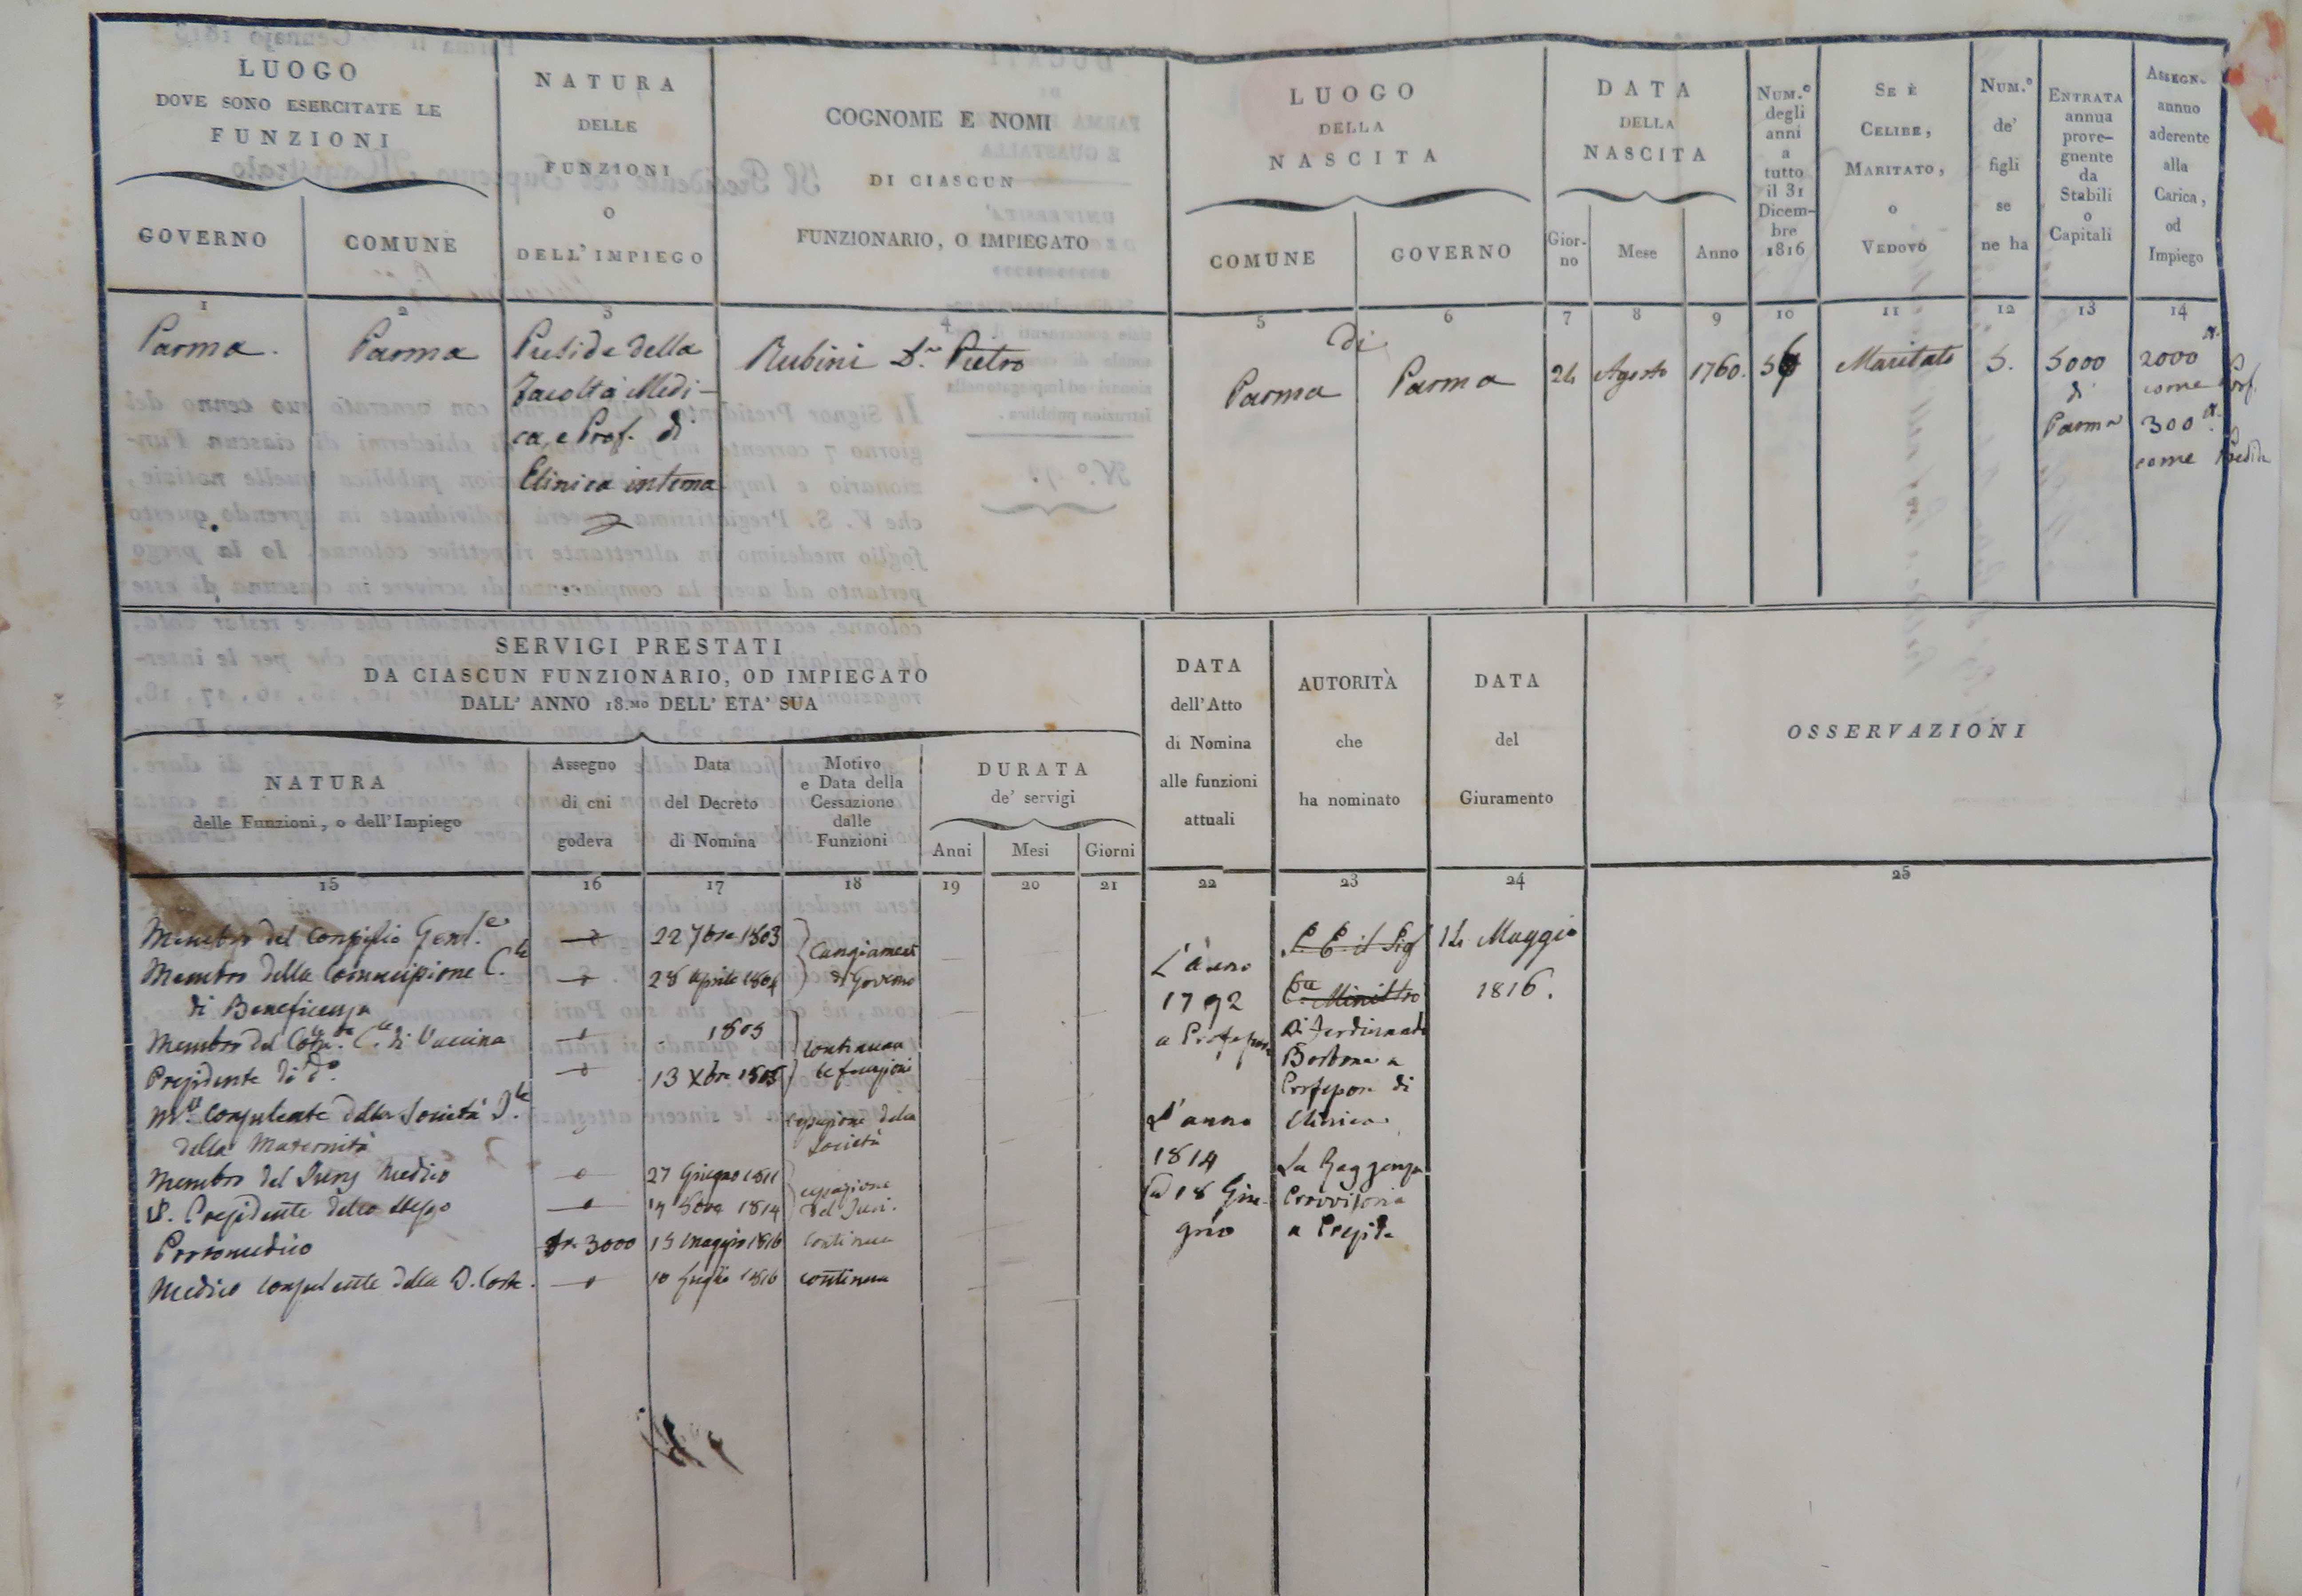 LUOGO
DOVE SONO ESERCITATE LE
FUNZIONI
GOVERNO
COMUNE
NATURA
DELLE
FUNZIONI
O
DELL' IMPIEGO
COGNOME E NOMI
DI CIASCUN
FUNZIONARIO, O IMPIEGATO
LUOGO
DELLA
NASCITA
COMUNE
GOVERNO
DATA
DELLA
NASCITA
Gior-
no
Mese
Anno
NUM.º
degli
anni
a
tutto
il 31
Dicem-
bre
1816
SE È
CELIBE,
MARITATO,
O
VEDOVO
NUM.º
de'
figli
se
ne ha
ENTRATA
annua
prove-
gnente
da
Stabili
o
Capitali
ASSEGN.
annuo
aderente
alla
Carica,
od
Impiego
1 2 3 4 5 6 7 8 9 10 11 12 13 14
Parma.
Parma
Preside della
Facoltà Medi-
ca, e Prof. di
Clinica interna
Rubini D.r Pietro
di
Parma
Parma
24
Agosto
1760.
56
Maritato
5.
5000
di
Parma
2000
come Prof.
300
come Preside
SERVIGI PRESTATI
DA CIASCUN FUNZIONARIO, OD IMPIEGATO
DALL' ANNO 18.MO DELL' ETA' SUA
NATURA
delle Funzioni, o dell'Impiego
Assegno
di cui
godeva
Data
del Decreto
di Nomina
Motivo
e Data della
Cessazione
dalle
Funzioni
DURATA
de' servigi
Anni
Mesi
Giorni
DATA
dell'Atto
di Nomina
alle funzioni
attuali
AUTORITÀ
che
ha nominato
DATA
del
Giuramento
OSSERVAZIONI
15 16 17 18 19 20 21 22 23 24 25
Membro del Consiglio Genl.e
22 7bre 1803
Cangiament
di Governo
Membro della Commissione C.le
28 Aprile 1804
di Beneficenza
Membro del C.le di Vaccina
1805
continuan
Presidente di d.º
13 Xbre 1805
le funzioni
M.co Consulente della Società
cessazione della
della Maternità
Società
Membro del Jury Medico
27 Giugno 1811
cessazione
V. Presidente dello stesso
1814
del Juri.
Protomedico
fr. 3000
15 Maggio 1816
continua
Medico consulente della D. Corte.
10 Luglio 1816
continua
L'anno
1792
a Professore
L'anno
1814
18 Giu-
gno
S. E. il Sig
Ministro
Di Ferdinando
Borbone a
Professore di
Clinica
La Reggenza
Provvisoria
a Preside
14 Maggio
1816.